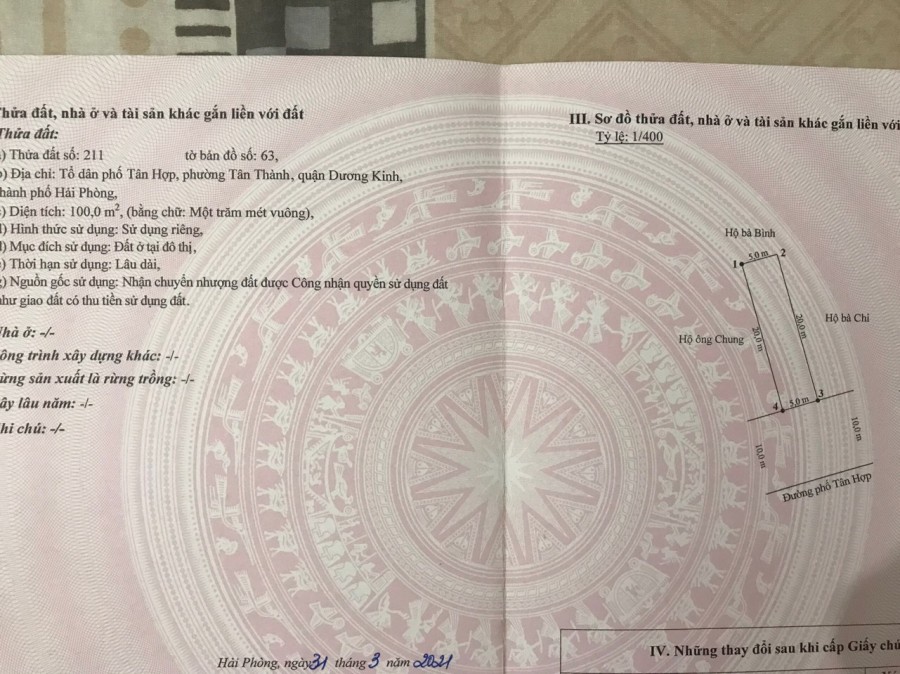 Thửa đất, nhà ở và tài sản khác gắn liền với đất
Thửa đất:
) Thửa đất số: 211 tờ bản đồ số: 63,
) Địa chỉ: Tổ dân phố Tân Hợp, phường Tân Thành, quận Dương Kinh,
thành phố Hải Phòng,
) Diện tích: 100,0 m², (bằng chữ: Một trăm mét vuông),
) Hình thức sử dụng: Sử dụng riêng,
) Mục đích sử dụng: Đất ở tại đô thị,
) Thời hạn sử dụng: Lâu dài,
) Nguồn gốc sử dụng: Nhận chuyển nhượng đất được Công nhận quyền sử dụng đất
như giao đất có thu tiền sử dụng đất.
Nhà ở: -/-
ông trình xây dựng khác: -/-
ừng sản xuất là rừng trồng: -/-
ây lâu năm: -/-
hi chú: -/-
Hải Phòng, ngày 31 tháng 3 năm 2021
III. Sơ đồ thửa đất, nhà ở và tài sản khác gắn liền với
Tỷ lệ: 1/400
Hộ bà Bình
1 5,0 m 2
Hộ ông Chung 20,0 m 20,0 m Hộ bà Chỉ
4 5,0 m 3
10,0 m 10,0 m
Đường phố Tân Hợp
IV. Những thay đổi sau khi cấp Giấy chú